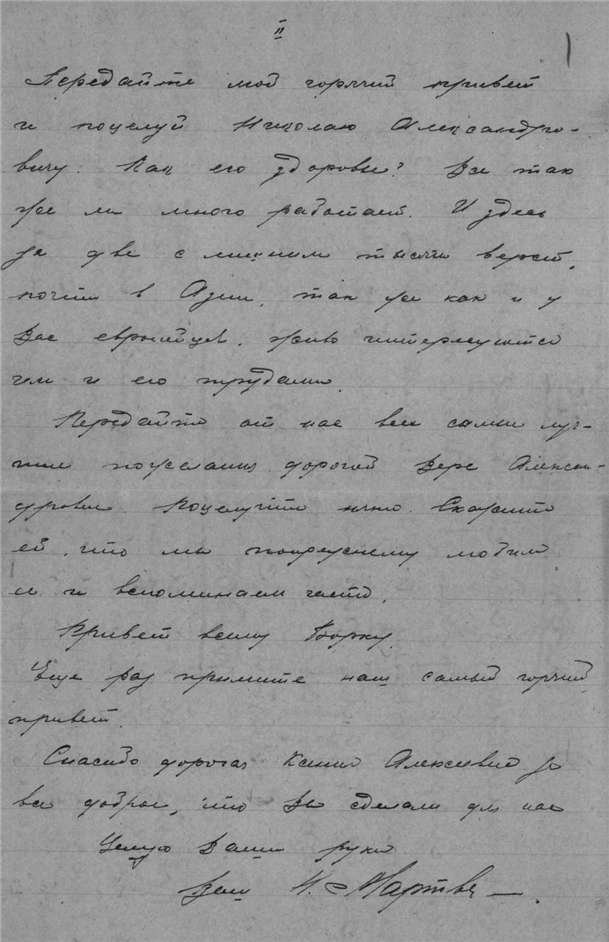 II
Передайте мой горячий привет
и поцелуй Николаю Александро-
вичу. Как его здоровье? Все так
же ли много работает. И здесь
за две с лишним тысячи верст,
почти в Азии, так же как и у
Вас европейцев, живо интересуются
им и его трудами.
Передайте от нас всех самые луч-
шие пожелания дорогой Вере Алексан-
дровне. Поцелуйте няню. Скажите
ей, что мы попрежнему любим
ее и вспоминаем часто.
Привет всему Борку.
Еще раз примите наш самый горячий
привет.
Спасибо дорогая Ксения Алексеевна за
все доброе, что Вы сделали для нас
Целую Ваши руки
Ваш